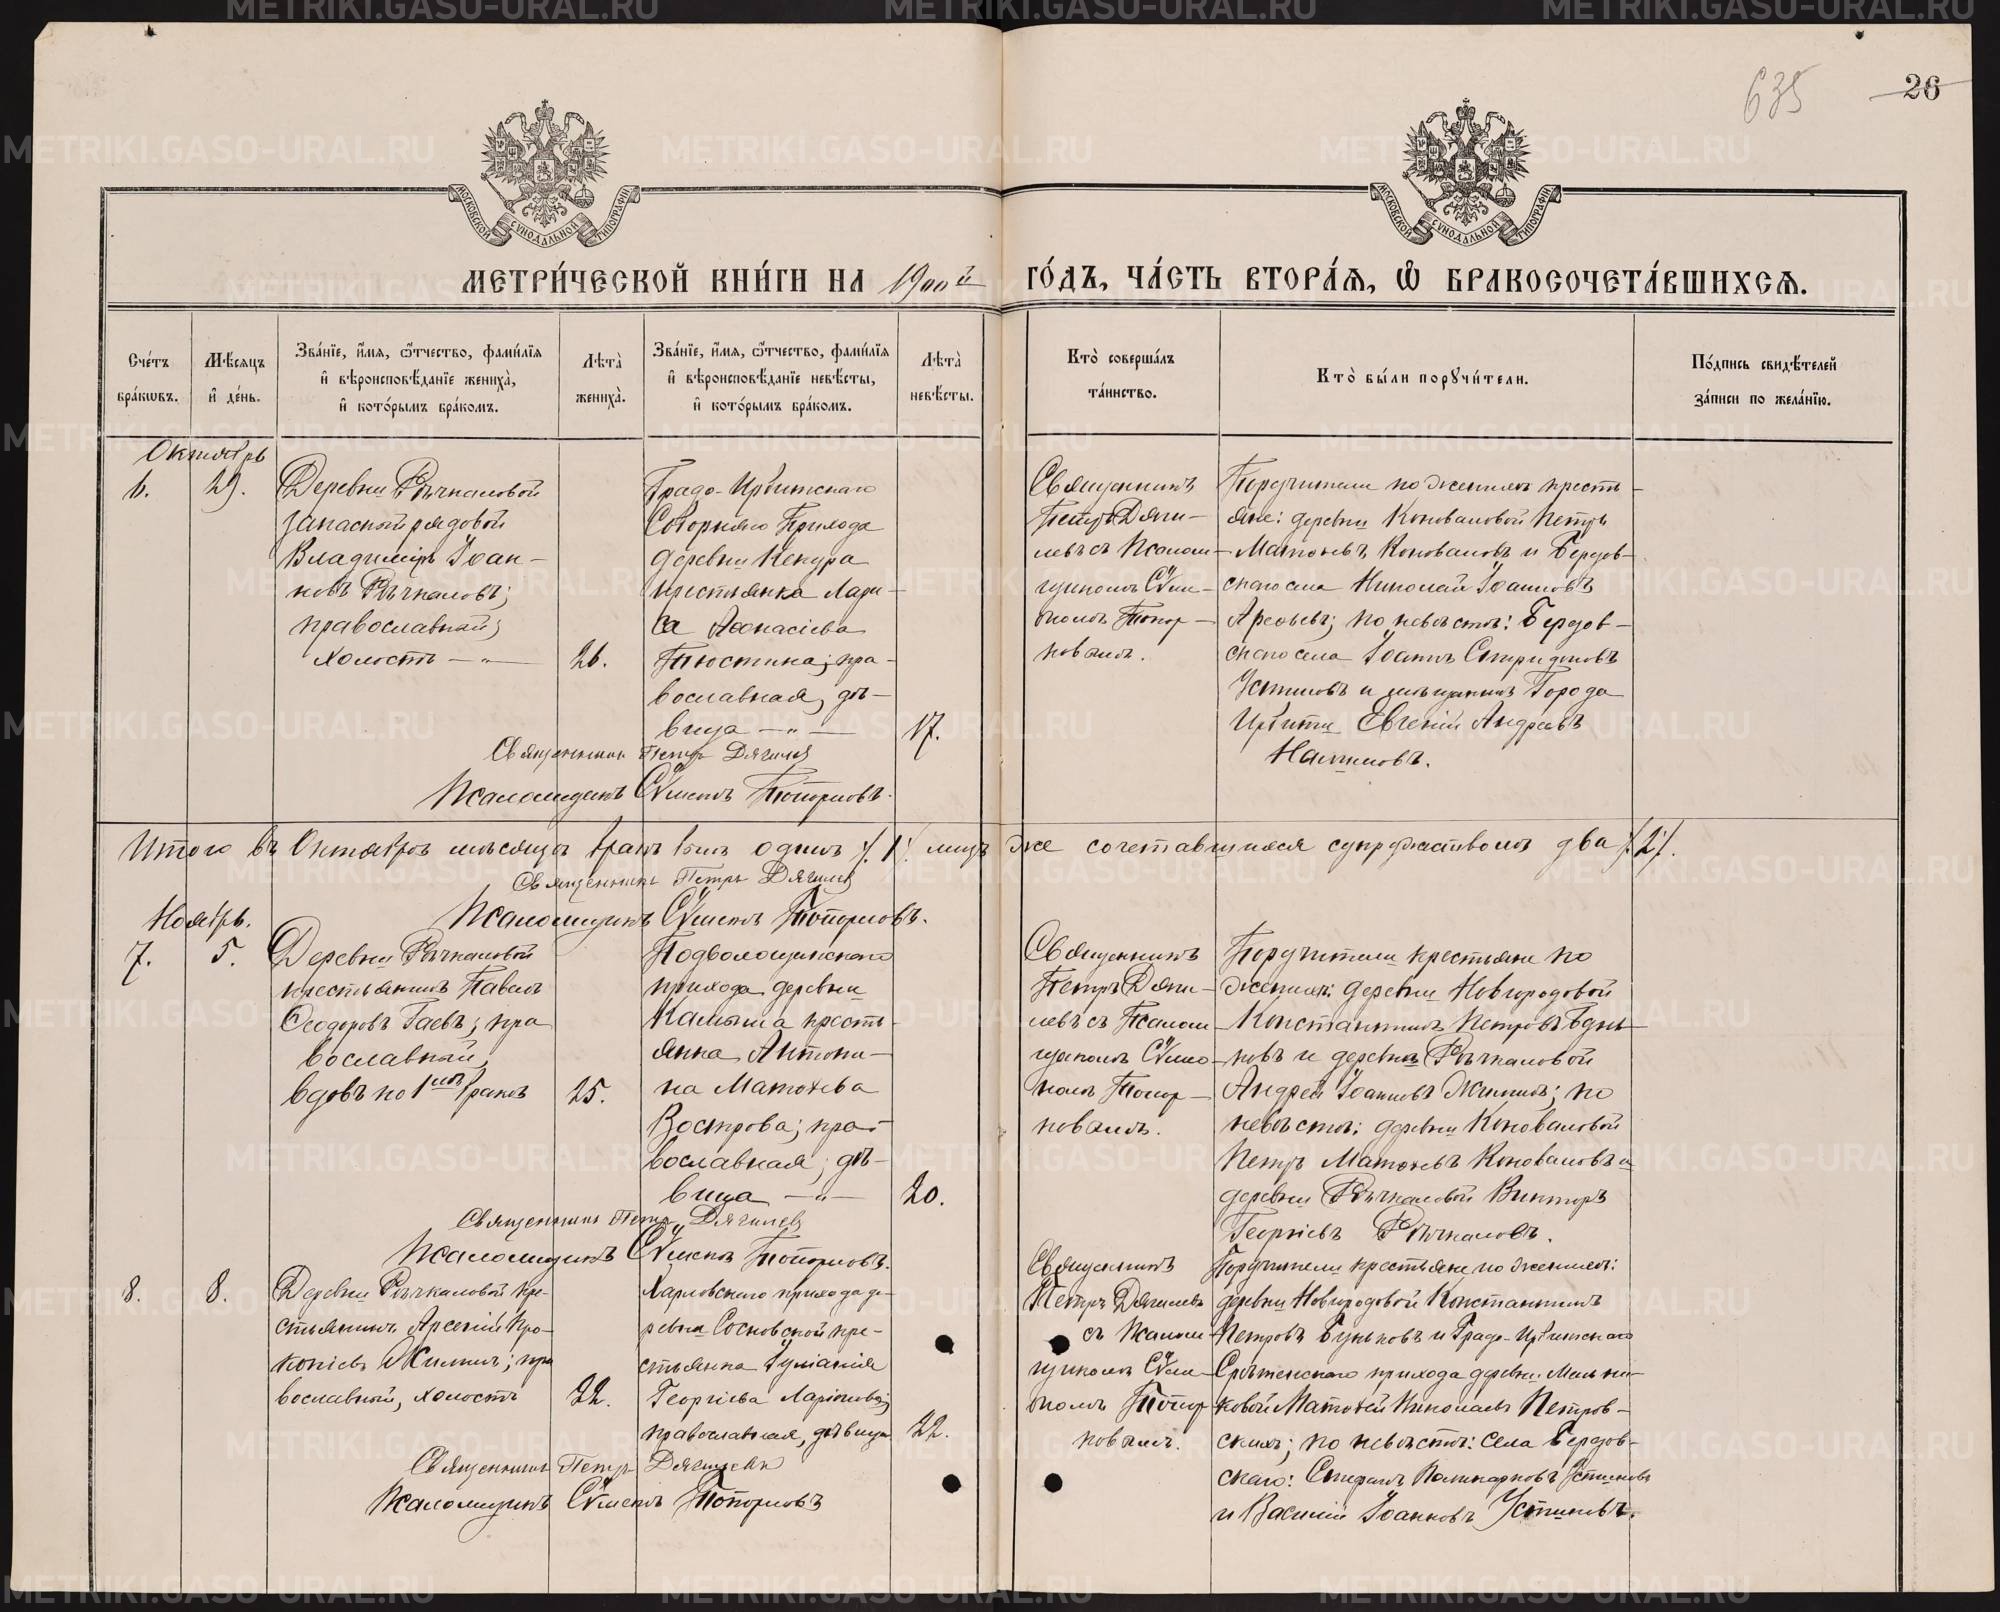 635 26
МЕТРИ́ЧЕСКОЙ КНИ́ГИ НА 1900й ГО́ДЪ, ЧА́СТЬ ВТОРА́Я, Ѡ БРАКОСОЧЕТА́ВШИХСЯ.
Сче́тъ бра́кωвъ.
Мѣ́сяцъ и де́нь.
Зва́нїе, и́мя, ѻ́тчество, фами́лїя и вѣроисповѣ́данїе жениха̀, и кото́рымъ бра́комъ.
Лѣта̀ жениха̀.
Зва́нїе, и́мя, ѻ́тчество, фами́лїя и вѣроисповѣ́данїе невѣ́сты, и кото́рымъ бра́комъ.
Лѣта̀ невѣ́сты.
Кто̀ соверша́лъ та́инство.
Кто̀ бы́ли порꙋчи́тели.
По́дпись свидѣ́телей за́писи по жела́нїю.
Октябрь
6. 29.
Деревни Рѣчкаловой
запасной рядовой
Владимiръ Іоан-
новъ Рѣчкаловъ;
православный;
холостъ — „ —
26.
Градо-Ирбитскаго
Соборнаго Прихода
деревни Кекура
крестьянка Лари-
са Аѳанасіева
Тюстина; пра-
вославная, дѣ-
вица — „ —
17.
Священникъ
Петръ Дяги-
левъ съ Псалом-
щикомъ Сѵме-
ономъ Топор-
ковымъ.
Поручители по женихѣ кресть-
яне: деревни Коноваловой Петръ
Матѳеевъ Коноваловъ и Бердов-
скаго села Николай Іоанновъ
Арефьевъ; по невѣстѣ: Бердов-
скаго села Іоаннъ Спиридоновъ
Устиновъ и мѣщанинъ Города
Ирбити Евгеній Андреевъ
Священникъ Петръ Дягилевъ
Псаломщикъ Сѵмеонъ Топорковъ.
Итого въ Октябрѣ мѣсяцѣ бракъ былъ одинъ /.1/. лицъ же сочетавшихся супружествомъ два /.2/.
Священникъ Петръ Дягилевъ
Псаломщикъ Сѵмеонъ Топорковъ.
Ноябрь.
7. 5.
Деревни Рѣчкаловой
крестьянинъ Павелъ
Ѳеодоровъ Гаевъ; пра
вославный,
вдовъ по 1мъ бракѣ
25.
Подволошинскаго
прихода деревни
Камыша кресть-
янка Антони-
на Матѳеева
Вострова; пра-
вославная; дѣ-
вица — „ —
20.
Священникъ
Петръ Дяги-
левъ съ Псалом-
щикомъ Сѵмео-
номъ Топор-
ковымъ.
Поручители крестьяне по
женихѣ: деревни Новгородовой
Константинъ Петровъ Бунь-
ковъ и деревни Рѣчкаловой
Андрей Іоанновъ Жилинъ; по
невѣстѣ: деревни Коноваловой
Петръ Матѳеевъ Коноваловъ и
деревни Рѣчкаловой Викторъ
Георгіевъ Рѣчкаловъ.
Священникъ Петръ Дягилевъ
Псаломщикъ Сѵмеонъ Топорковъ.
8. 8.
Деревни Рѣчкаловой кре-
стьянинъ Арсеній Про-
копіевъ Жилинъ; пра
вославный, холостъ
22.
Харловскаго прихода де-
ревни Сосновской кре-
стьянка Іуліанія
Георгіева Ларіонова;
православная, дѣвица
22.
Священникъ
Петръ Дягилевъ
съ Псалом-
щикомъ Сѵме-
ономъ Топор-
ковымъ.
Поручители крестьяне по женихѣ:
деревни Новгородовой Константинъ
Петровъ Буньковъ и Градо-Ирбитскаго
Срѣтенскаго прихода деревни Мельни-
ковой Матѳей Николаевъ Петров-
скихъ; по невѣстѣ: села Бердов-
скаго: Стефанъ Поликарповъ Устиновъ
и Василій Іоанновъ Устиновъ.
Священникъ Петръ Дягилевъ
Псаломщикъ Сѵмеонъ Топорковъ